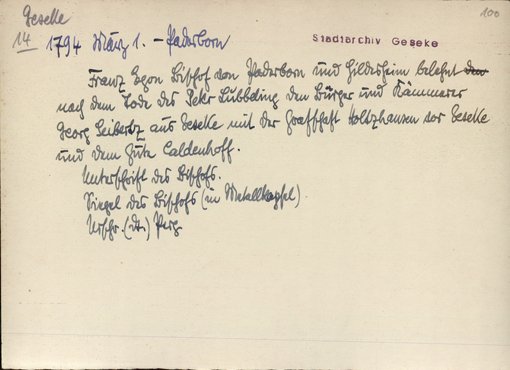 Geseke
100
14 1794 März 1. - Paderborn
Stadtarchiv Geseke
Franz Egon Bischof von Paderborn und Hildesheim belehnt den
nach dem Tode des Pet Lübbeling den Bürger und Kämmerer
Georg Seibertz aus Geseke mit der Grafschaft Holtzhausen vor Geseke
und dem Gute Caldenhoff.
Unterschrift des Bischofs.
Siegel des Bischofs (in Metallkapsel).
Urschr. (dt.) Perg.